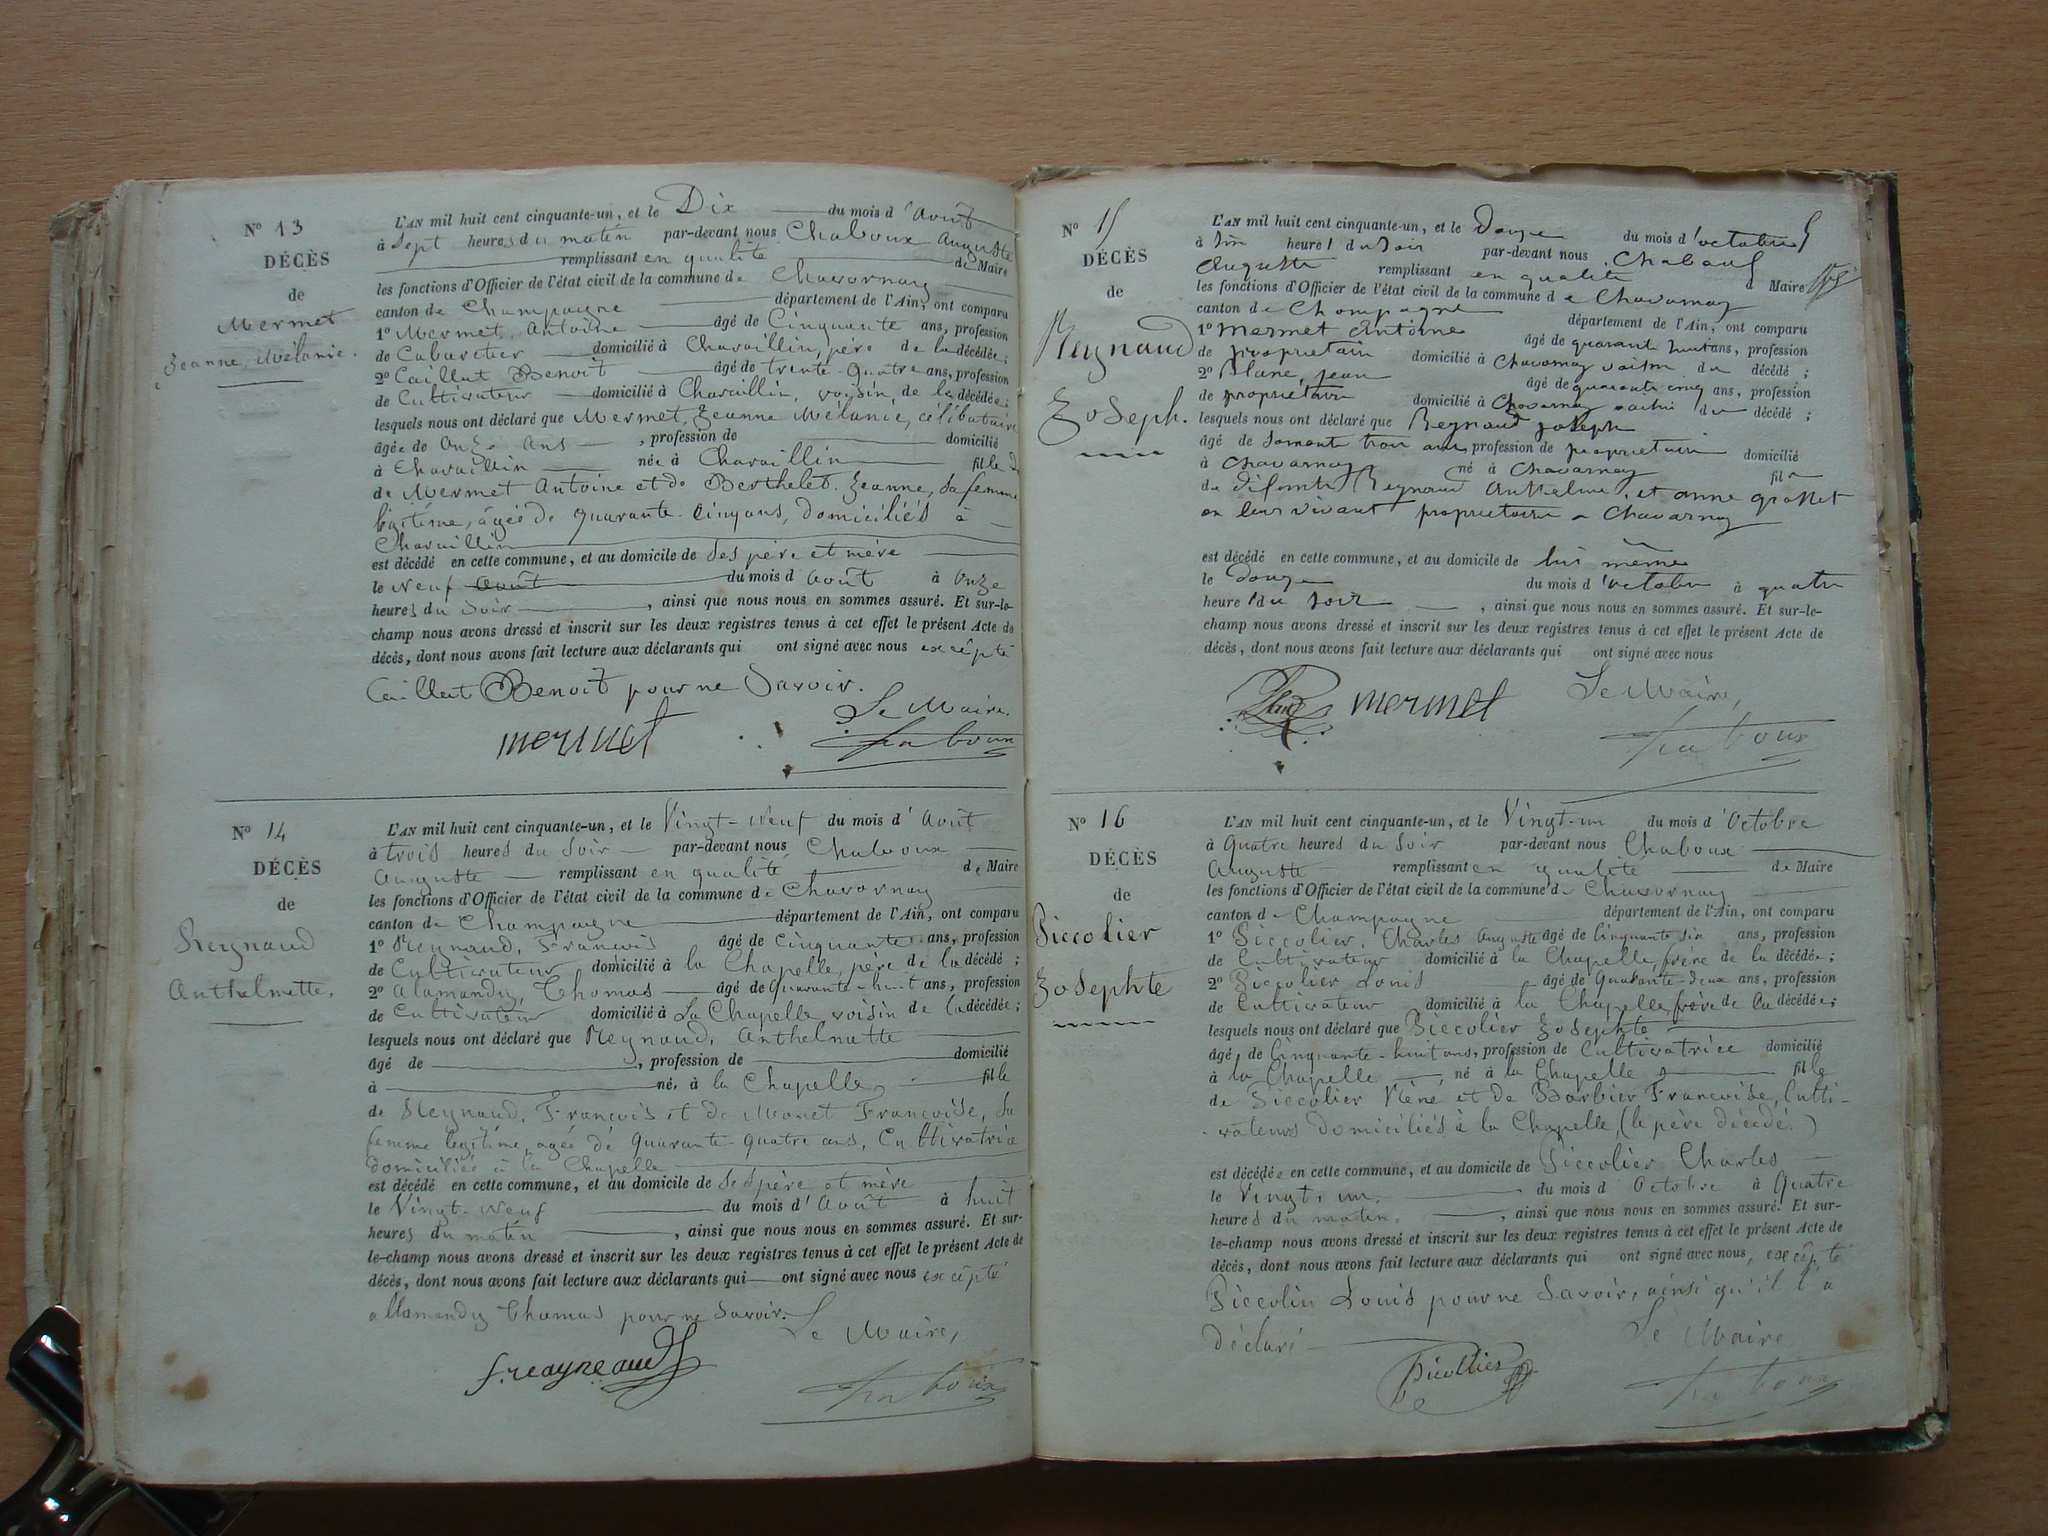 Nº 13
DÉCÈS
de
Mermet
Jeanne, Mélanie.
L'AN mil huit cent cinquante-un, et le Dix du mois d'Août
à Sept heures du matin par-devant nous Chaboux Auguste
remplissant en qualité de Maire
les fonctions d'Officier de l'état civil de la commune de Chavornay
canton de Champagne département de l'Ain, ont comparu
1º Mermet, Antoine âgé de Cinquante ans, profession
de Cabaretier domicilié à Chavaillin, père de la décédée;
2º Caillat Benoit âgé de trente-quatre ans, profession
de Cultivateur domicilié à Chavaillin, voisin, de la décédée;
lesquels nous ont déclaré que Mermet, Jeanne Mélanie, célibataire
âgée de Onze ans, profession de domicilié
à Chavaillin née à Chavaillin fille
de Mermet Antoine et de Berthelet Jeanne, sa femme
légitime, âgée de quarante-cinq ans, domiciliés à
Chavaillin
est décédé en cette commune, et au domicile de ses père et mère
le Neuf août du mois d'Août à Onze
heures du soir, ainsi que nous nous en sommes assuré. Et sur-le-
champ nous avons dressé et inscrit sur les deux registres tenus à cet effet le présent Acte de
décès, dont nous avons fait lecture aux déclarants qui ont signé avec nous excepté
Caillat Benoit pour ne savoir.
Le Maire.
mermet Chaboux
Nº 14
DÉCÈS
de
Reynaud
Anthelmette.
L'AN mil huit cent cinquante-un, et le Vingt-Neuf du mois d'Août
à trois heures du soir par-devant nous Chaboux
Auguste remplissant en qualité de Maire
les fonctions d'Officier de l'état civil de la commune de Chavornay
canton de Champagne département de l'Ain, ont comparu
1º Reynaud, François âgé de Cinquante ans, profession
de Cultivateur domicilié à la Chapelle, père de la décédé;
2º alamandy, Thomas âgé de Quarante-huit ans, profession
de Cultivateur domicilié à La Chapelle, voisin de la décédée;
lesquels nous ont déclaré que Reynaud, Anthelmette
âgé de, profession de domicilié
à née à la Chapelle, fille
de Reynaud, François et de Monet Françoise, sa
femme légitime, agée de quarante-quatre ans, Cultivatrice
domiciliés à la Chapelle
est décédé en cette commune, et au domicile de ses père et mère
le Vingt-Neuf du mois d'Août à huit
heures du matin, ainsi que nous nous en sommes assuré. Et sur-
le-champ nous avons dressé et inscrit sur les deux registres tenus à cet effet le présent Acte de
décès, dont nous avons fait lecture aux déclarants qui ont signé avec nous excepté
allamandy Thomas pour ne savoir.
Le Maire,
f. reayneaud Chaboux
Nº 15
DÉCÈS
de
Reynaud
Joseph.
L'AN mil huit cent cinquante-un, et le douze du mois d'octobre
à heures du soir par-devant nous Chaboux
Auguste remplissant en qualité d Maire
les fonctions d'Officier de l'état civil de la commune de Chavornay
canton de Champagne département de l'Ain, ont comparu
1º Mermet Antoine âgé de quarant huit ans, profession
de propriétair domicilié à Chavornay voisin du décédé;
2º Blanc, jean âgé de quarante cinq ans, profession
de propriétair domicilié à Chavornay voisin du décédé;
lesquels nous ont déclaré que Reynaud joseph
âgé de soixante trois ans, profession de proprietair domicilié
à Chavornay né à Chavornay fils
de défunts Reynaud Anthelme, et anne grosset
en leur vivant proprietaire a Chavornay
est décédé en cette commune, et au domicile de lui même
le douze du mois d'octobre à quatre
heures du soir, ainsi que nous nous en sommes assuré. Et sur-le-
champ nous avons dressé et inscrit sur les deux registres tenus à cet effet le présent Acte de
décès, dont nous avons fait lecture aux déclarants qui ont signé avec nous
mermet Le Maire,
Chaboux
Nº 16
DÉCÈS
de
Piccolier
Josephte
L'AN mil huit cent cinquante-un, et le Vingt-un du mois d'Octobre
à Quatre heures du soir par-devant nous Chaboux
Auguste remplissant en qualité de Maire
les fonctions d'Officier de l'état civil de la commune de Chavornay
canton de Champagne département de l'Ain, ont comparu
1º Piccolier, Charles Auguste âgé de Cinquante six ans, profession
de Cultivateur domicilié à la Chapelle, frère de la décédée;
2º Piccolier Louis âgé de Quarante-deux ans, profession
de Cultivateur domicilié à la Chapelle, frère de la décédée;
lesquels nous ont déclaré que Piccolier Josephte
âgé de Cinquante-huit ans, profession de Cultivatrice domicilié
à la Chapelle, né à la Chapelle fille
de Piccolier Réné et de Barbier Françoise, Culti-
vateurs domiciliés à la Chapelle, (le père décédé.)
est décédée en cette commune, et au domicile de Piccolier Charles
le Vingt-un, du mois d Octobre à Quatre
heures du matin, ainsi que nous nous en sommes assuré. Et sur-
le-champ nous avons dressé et inscrit sur les deux registres tenus à cet effet le présent Acte de
décès, dont nous avons fait lecture aux déclarants qui ont signé avec nous, excepté
Piccolier Louis pour ne savoir, ainsi qu'il l'a
déclaré
Le Maire
Chaboux